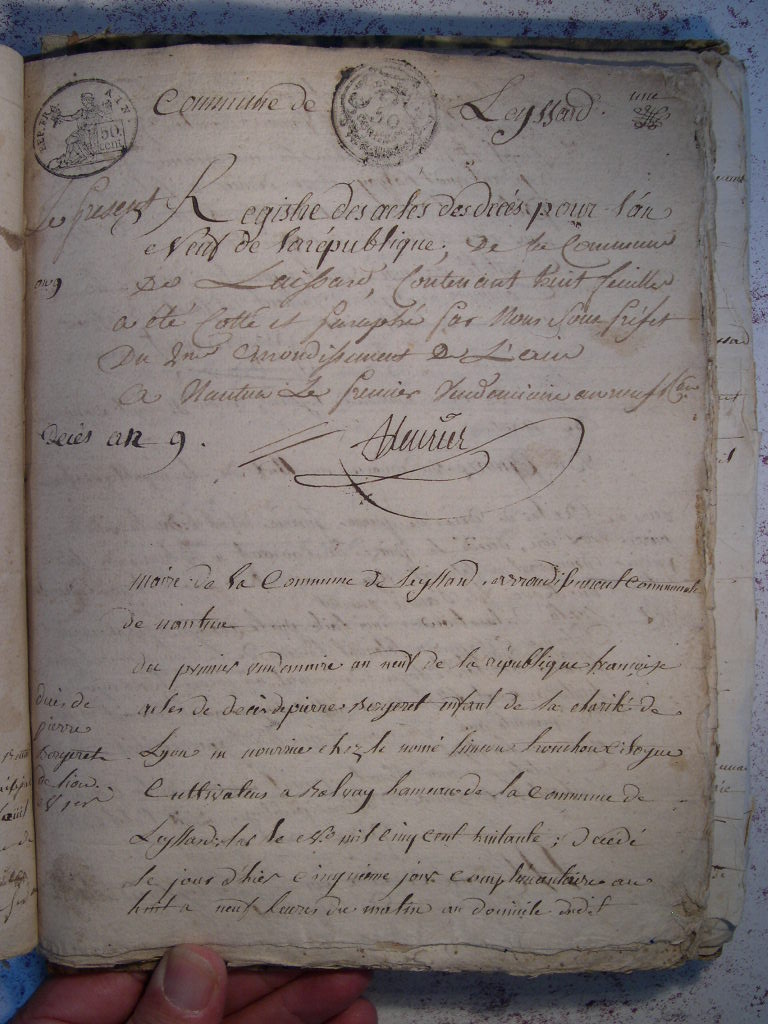 REP. FRA. AIN.
50 cent
Commune de Leyssard. une
Le présent Registre des actes des décès pour l'an
Neuf de la république, De la Commune
an 9
De Laissard, Contenant huit feuilles
a été Cotté et paraphé par Nous Sous préfet
Du 2me arrondissement De L'ain
A Nantua Le premier Vendémiaire an neuf
Decès an 9.
maire de la Commune de Leyssard, arrondissement communale
de nantua
du premier vendemaire an neuf de la république françoise
actes de decès de pierre Bergeret enfant de la charité de
decès de
pierre
Bergeret
de lion
Lyon en nourrice chez le nommé
Cultivateur a Balvay hameau de la commune de
Leyssard, sur le No mil cinq cent huitante; décedé
le jour d'hier cinquieme jour complimentaire an
huit a neuf heures du matin au domicile dudit